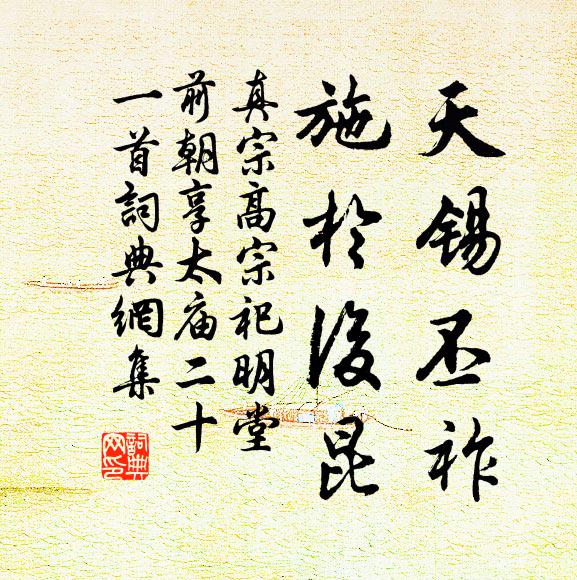 天錫丕祚
施於後昆
真宗高宗祀明堂
前朝享太庙二十
一首詞典網集
詞典
网印